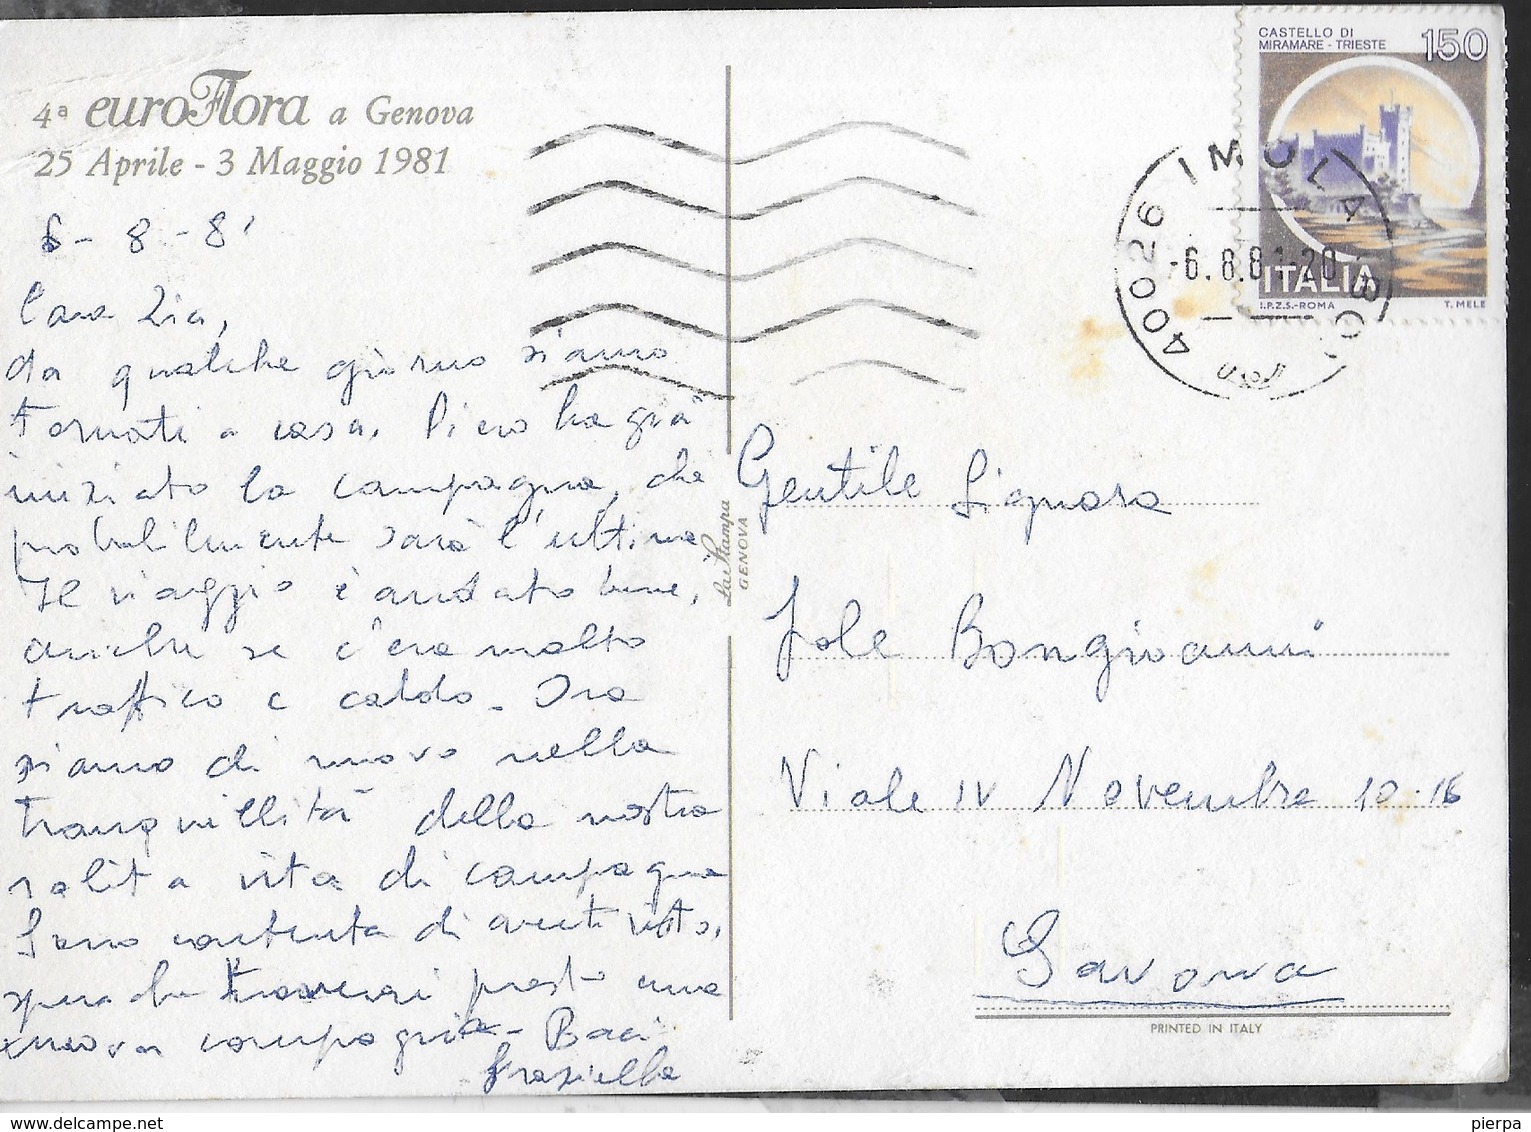 4ª euroFlora a Genova
25 Aprile - 3 Maggio 1981
6-8-81
Cara Zia,
da qualche giorno siamo
tornati a casa. Piero ha già
iniziato la campagna, che
probabilmente sarà l'ultima.
Il viaggio è andato bene,
anche se c'era molto
traffico e caldo. Ora
siamo di nuovo nella
tranquillità della nostra
solita vita di campagna
Sono contenta di averti visto,
spero che troverai presto una
nuova compagnia - Baci
Graziella
La Stampa
GENOVA
CASTELLO DI
MIRAMARE - TRIESTE
150
ITALIA
I.P.Z.S.-ROMA T. MELE
40026 IMOLA
-6.8.81-20
Gentile Signora
Jole Bongiovanni
Viale IV Novembre 10-16
Savona
PRINTED IN ITALY
pierpa